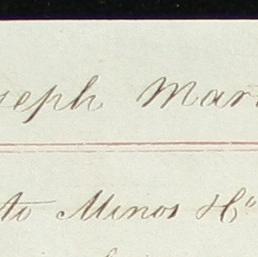 seph Mar
to Minos H"